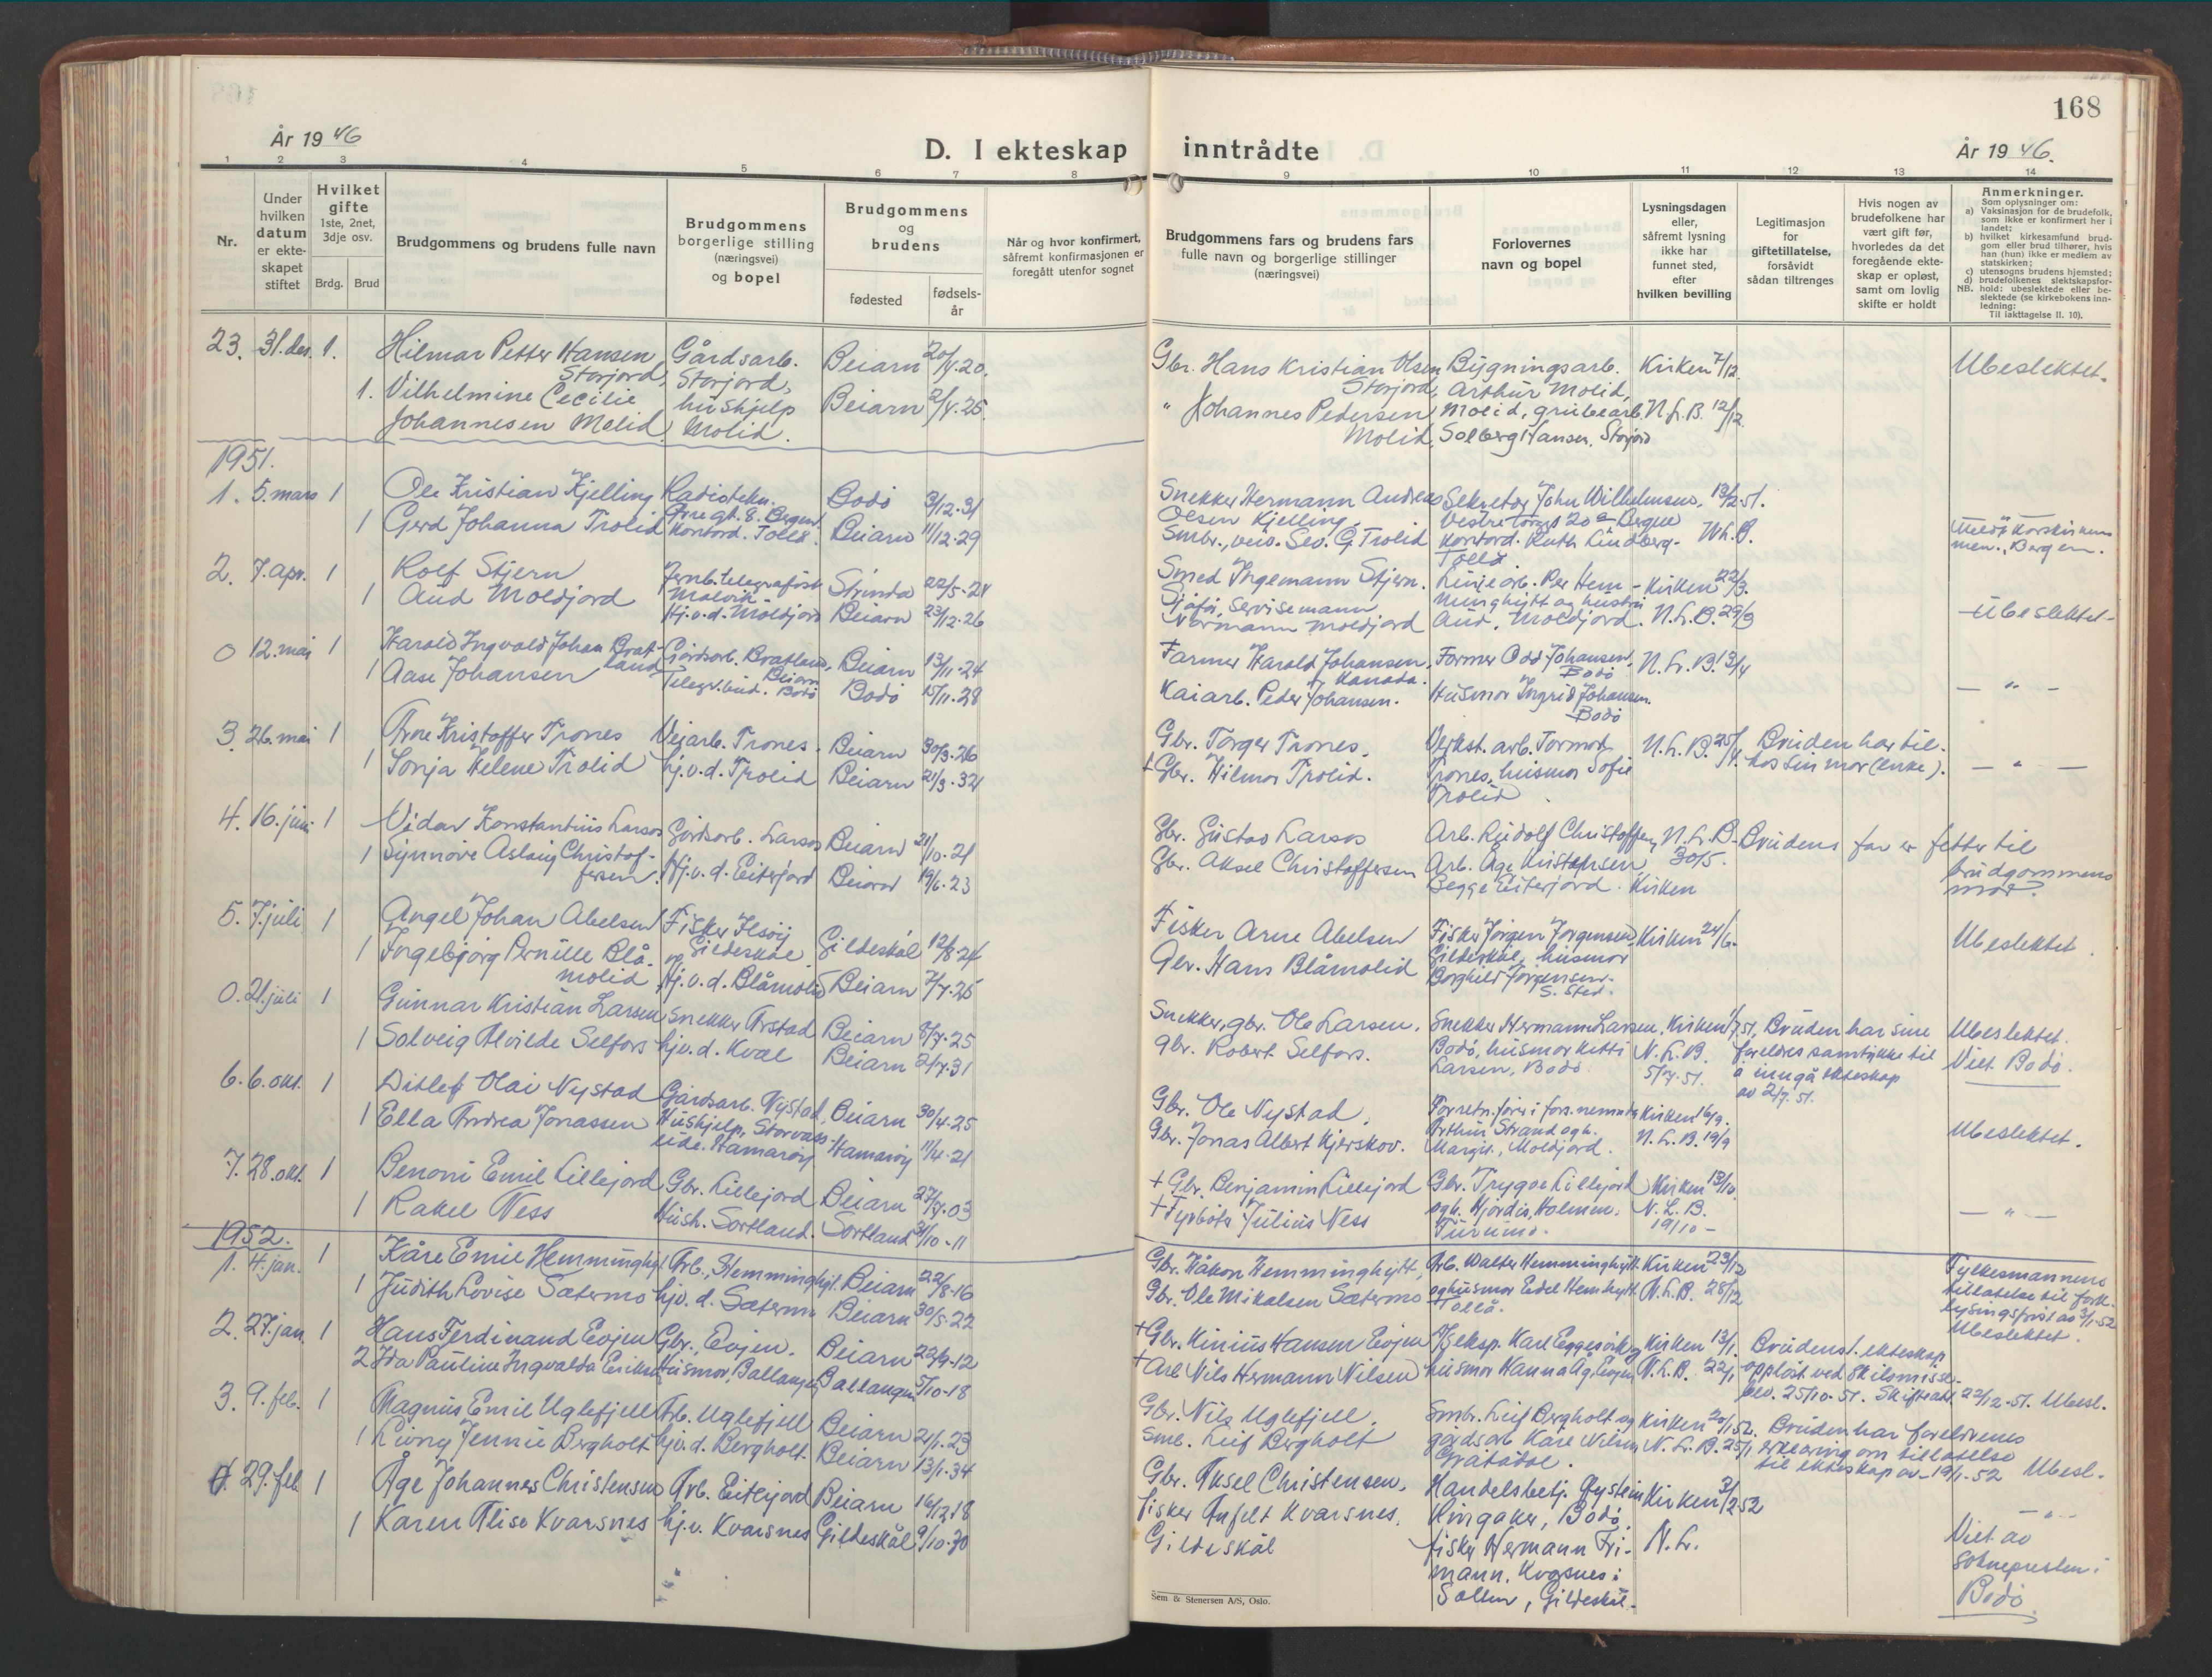 168
År 1946
D. I ekteskap inntrådte
År 1946.
1 2 3 4 5 6 7 8 9 10 11 12 13 14
Nr.
Under hvilken datum er ekteskapet stiftet
Hvilket gifte 1ste, 2net, 3dje osv.
Brdg. Brud
Brudgommens og brudens fulle navn
Brudgommens borgerlige stilling (næringsvei) og bopel
Brudgommens og brudens
fødested
fødsels-år
Når og hvor konfirmert, såfremt konfirmasjonen er foregått utenfor sognet
Brudgommens fars og brudens fars fulle navn og borgerlige stillinger (næringsvei)
Forlovernes navn og bopel
Lysningsdagen eller, såfremt lysning ikke har funnet sted, efter hvilken bevilling
Legitimasjon for giftetillatelse, forsåvidt sådan tiltrenges
Hvis nogen av brudefolkene har vært gift før, hvorledes da det foregående ekteskap er opløst, samt om lovlig skifte er holdt
Anmerkninger.
Som oplysninger om:
a) Vaksinasjon for de brudefolk, som ikke er konfirmert her i landet;
b) hvilket kirkesamfund brudgom eller brud tilhører, hvis han (hun) ikke er medlem av statskirken;
c) utensogns brudens hjemsted;
d) brudefolkenes slektskapsforhold: ubeslektede eller beslektede (se kirkebokens innledning:
NB.
Til iakttagelse II. 10).
23. 31. des. 1. Hilmar Petter Hansen Gårdsarb. Beiarn 20/4.20. Gbr. Hans Kristian Olsen Bygningsarb. Kirken 7/12. Ubeslektet.
Storjord, Storjord, Storjord, Arthur Molid,
1. Vilhelmine Cecilie hushjelp Beiarn 2/4.25. " Johannes Pedersen Molid, grubearb. N.L.B. 12/12
Johannesen Molid Molid. Molid, Solberg Hansen, Storjord
1951.
1. 5. mars 1 Ole Kristian Kjelling Radiotekn. Bodø 3/12.31 Snekker Hermann Andreas Sekretær John Wilhelmsen, 13/2.51.
Olsen Kjelling, Vestre Torvgt 20 Bergen
1 Gerd Johanna Trolid kontord. Tollå. Beiarn 11/12.29 Smbr., veiv. Sev. G Trolid kontord. Ruth Lindberg. Tollå
men., Bergen.
2. 7. apr. 1 Rolf Stjern Jernb. telegrafist Malvik Strinda 22/5.24 Smed Ingemann Stjern. Linjearb. Per Hem- Kirken 22/3.
1 Aud Moldjord Hj.v.d. Moldjord Beiarn 23/12.26 Sjåfør, servisemann Normann Moldjord minghytt og hustru Aud, Moldjord. N.L.B. 29/3 Ubeslektet-
0 12. mai 1 Harald Ingvald Johan Bratland Gårdsarb. Bratland, Beiarn Beiarn 13/11.24 Farmer Harald Johansen, Kanada. Farmer Odd Johansen, Bodø N.L.B. 13/4
1 Aase Johansen Telegr.bud. Bodø Bodø 15/11.28 Kaiarb. Peder Johansen. Husmor Ingrid Johansen. Bodø — " —
3. 26. mai 1 Arne Kristoffer Trones Veiarb. Trones. Beiarn 30/3.26 Gbr. Torger Trones. Verkst. arb. Tormod N.L.B. 25/4. Bruden har til-
1 Sonja Helene Trolid hj.v.d. Trolid Beiarn 21/3.32 +Gbr. Hilmar Trolid. Trones, husmor Sofie Trolid. hos sin mor (enke). — " —
4. 16. juni 1 Vidar Konstantius Larsos Gårdsarb. Larsos Beiarn 21/10.21 Gbr. Gustav Larsos Arb. Rudolf Christoffersen N.L.B. Brudens far er fetter til
30/5.
1 Synnøve Aslaug Christoffersen. Hj.v.d. Eiterjord Beiarn 19/6.23 Gbr. Aksel Christoffersen Arb. Åge Kristensen Begge Eiterjord. Kirken brudgommens mor.
5. 7. juli 1 Angel Johan Abelsen Fisker Gildeskål Gildeskål 12/8.24 Fisker Arne Abelsen Fisker Jørgen Jørgensen, Kirken 24/6. Ubeslektet.
1 Ingebjørg Pernille Blåmolid Hj.v.d. Blåmolid Beiarn 7/7.25 Gbr. Hans Blåmolid Gildeskål, husmor Borghild Jørgensen. S. sted.
0. 21. juli 1 Gunnar Kristian Larsen Snekker Arstad Beiarn 8/7.25 Snekker, gbr. Ole Larsen. Snekker Hermann Larsen, Kirken 1/7 51, Bruden har sine Ubeslektet.
1 Solveig Alvilde Selfors hj.v.d. Kvæl Beiarn 2/7.31 Gbr. Robert Selfors. Bodø, husmor Kitti Larsen, Bodø N.L.B. 5/7.51. foreldres samtykke til å inngå ekteskap av 2/7.51. Viet. Bodø.
6. 6. okt. 1 Ditlef Olai Nystad Gårdsarb. Nystad, Beiarn 30/4.25 Gbr. Ole Nystad. Forretn.fører i fors.nemnda Kirken 16/9.
1 Ella Andrea Jonassen Hushjelp, Hamarøy Hamarøy 11/4.21 Gbr. Jonas Albert Kjerskov. Arthur Strand og h. Margit, Moldjord. N.L.B. 19/9 Ubeslektet.
7. 28. okt. 1 Benoni Emil Lillejord Gbr. Lillejord Beiarn 27/7.03 + Gbr. Benjamin Lillejord Gbr. Trygve Lillejord Kirken 13/10.
1 Rakel Ness Hush. Sortland. Sortland 31/10-11 + Fyrbøter Julius Ness og h. Hjørdis, Holmen, N.L.B. 19/10- — " —
1952.
1. 4. jan. 1 Kåre Emil Hemminghytt Arb., Hemminghytt. Beiarn 22/8-16 Gbr. Håkon Hemminghytt, Arb. Walter Hemminghytt Kirken 23/12 Fylkesmannens
1 Judith Lovise Sætermo hjv.d. Sætermo Beiarn 30/5.22 Gbr. Ole Mikalsen Sætermo og husmor Eidel Hemhytt. Tollå. N.L.B. 28/12 tillatelse til fork. lysingsfrist av 3/1-52 Ubeslektet.
2. 27. jan. 1 Hans Ferdinand Evjen Gbr., Evjen. Beiarn 22/9-12 +Gbr. Kinius Hansen Evjen Karl Eggesvik og Kirken 13/1. Brudens 1. ekteskap
2 Ida Pauline Ingvalda Eriksen Husmor, Ballangen Ballangen 5/10-18 +Arb Nils Hermann Nilsen husmor Hanna Ag. Evjen N.L.B. 22/1 oppløst ved skilsmisse- bev. 25/10-51. Skifteatt. 22/12-51. Ubesl.
3. 9. feb. 1 Magnus Emil Uglefjell Arb. Uglefjell Beiarn 21/1.23 Gbr. Nils Uglefjell. Smbr. Leif Bergholt og Kirken 20/1 52. Bruden har foreldrenes
1 Livny Jennie Bergholt hjv.d. Bergholt. Beiarn 13/1.34 Smb. Leif Bergholt gårdsarb Kåre Nilsen Gråtådal. N.L.B. 25/1 erklæring om tillatelse til ekteskap av 19/1-52 Ubesl.
4. 29. feb. 1 Åge Johannes Christensen Arb. Eiterjord Beiarn 16/12 18 Gbr. Aksel Christensen, Handelsbetj. Øystein Kirken 3/2 52
1 Karen Alise Kvarsnes hj.v. Kvarsnes Gildeskål 9/10-30 fisker Anfelt Kvarsnes, Gildeskål Ringaker, Bodø, fisker Hermann Frimann, i Gildeskål. N.L. — " — Viet av soknepresten i Bodø.
Sem & Stenersen A/S, Oslo.